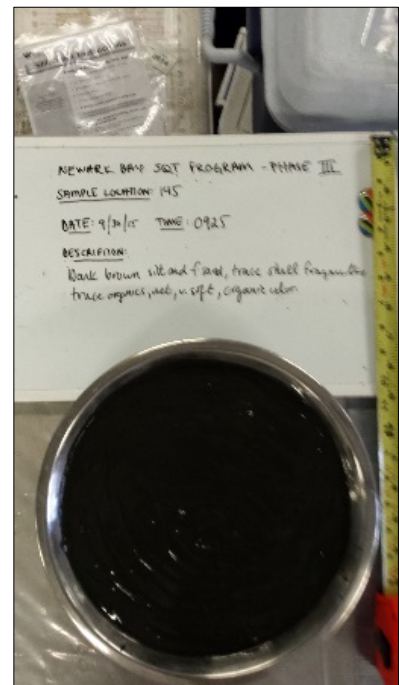 NEWARK BAY SQT PROGRAM - PHASE III
SAMPLE LOCATION: 145
DATE: 9/30/15 TIME: 0925
DESCRIPTION:
Dark brown silt and f sand, trace shell fragments
trace organics, wet, v. soft, organic odor.